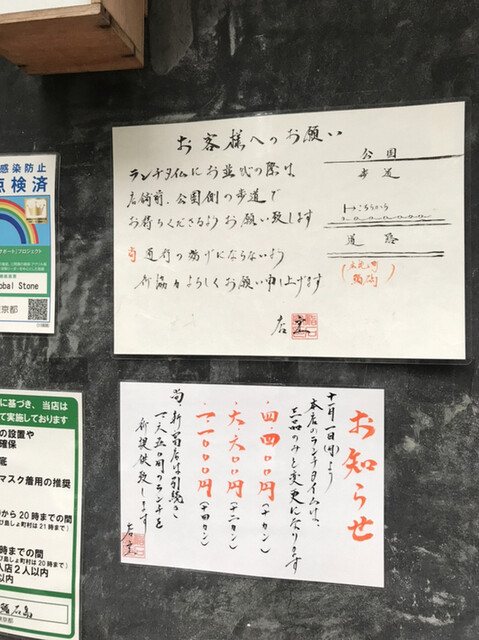 お客様へのお願い
ランチタイムにお並びの際は
店舗前、公園側の歩道で
お待ちくださるようお願い致します
尚 通行の妨げにならないよう
御協力よろしくお願い申し上げます
店主
公園
歩道
道路
お知らせ
十一月一日(月)より
本店のランチタイムは、
三品のみと変更になります
・四、四〇〇円
・六、六〇〇円
・一一、〇〇〇円
尚、新富店は引続き
一、六五〇円のランチを
御提供致します
店主
感染防止
点検済
サポート/プロジェクト
obal Stone
京都
に基づき、当店は
て実施しております
の設置や
確保
底
マスク着用の推奨
から 20 時までの間
び島しょ町村は 21 時まで)
時までの間
び島しょ町村は 20 時まで)
入店2人以内
人以内